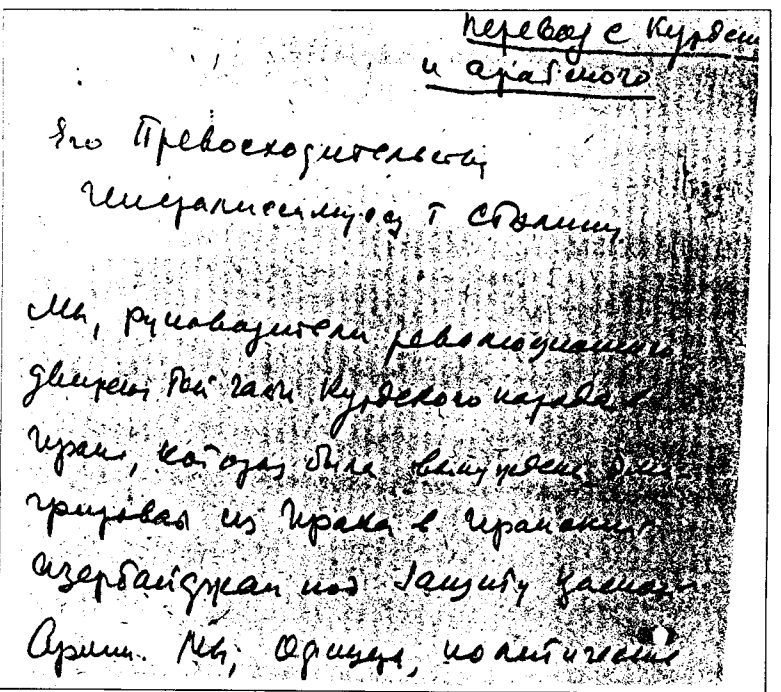 Перевод с Курдск
и арабского
Его Превосходительству
Генералиссимусу т Сталину
Мы, руководители революционного
движения той части Курдского народа
Ирака, которая была вынуждена эми
грировать из Ирака в Иранский
Азербайджан под защиту Красной
Армии. Мы, Офицеры, политические